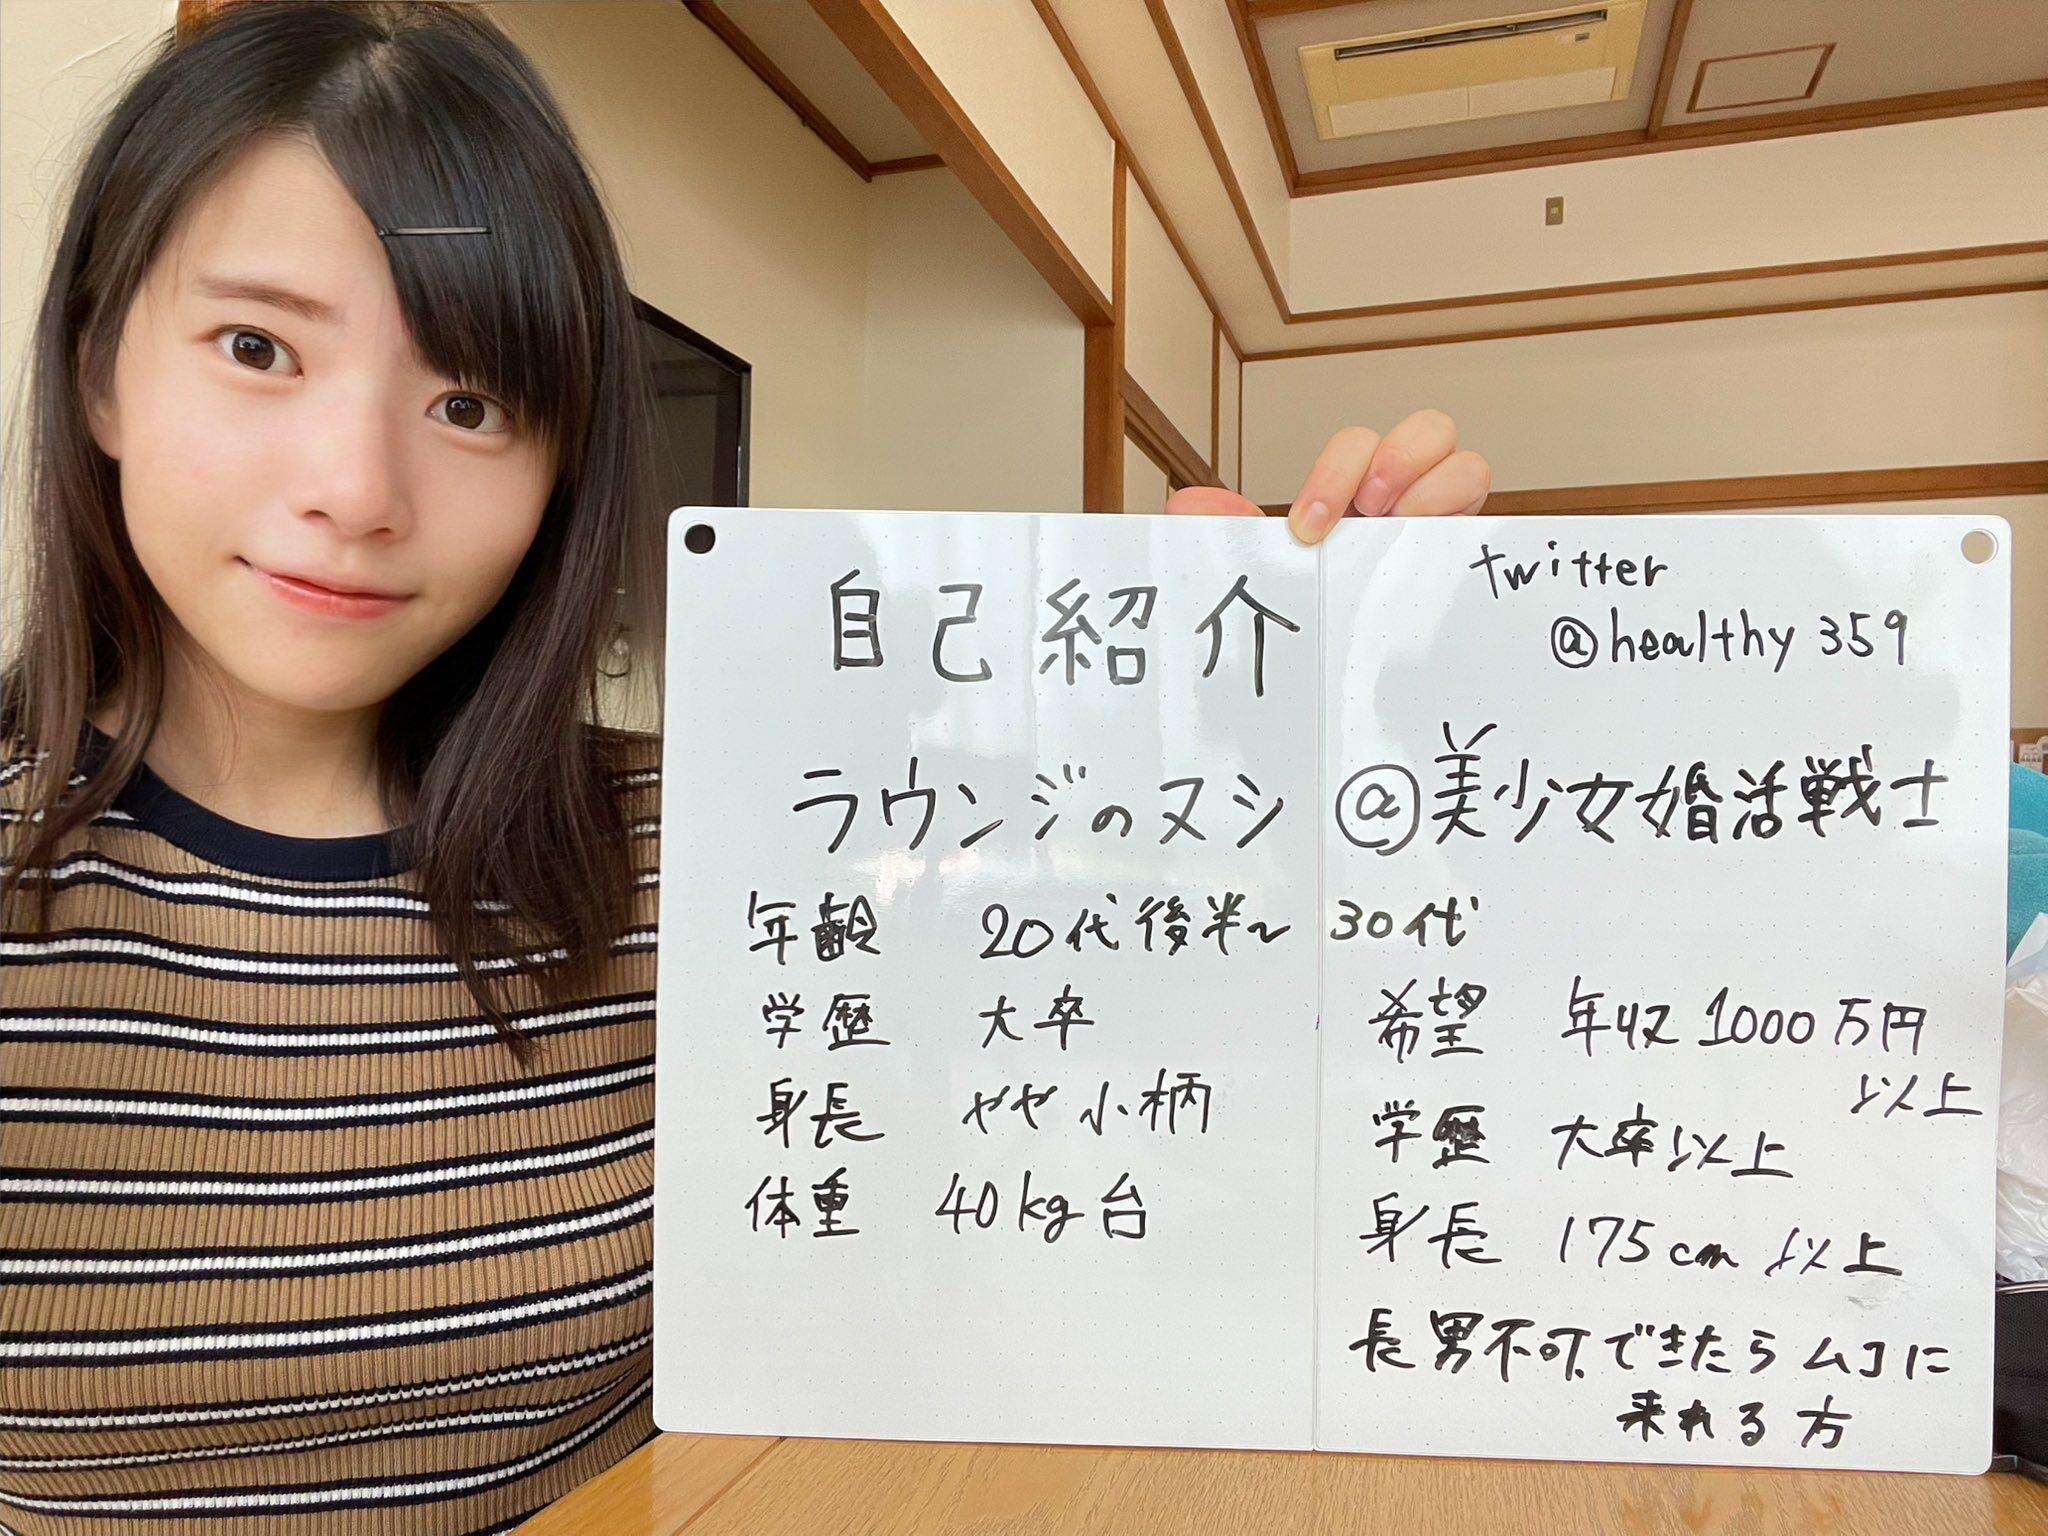 自己紹介
twitter
@healthy359
ラウンジのヌシ@美少女婚活戦士
年齢 20代後半～30代
学歴 大卒
身長 やや小柄
体重 40kg台
希望 年収1000万円
以上
学歴 大卒以上
身長 175cm以上
長男不可.できたらムコに
来れる方